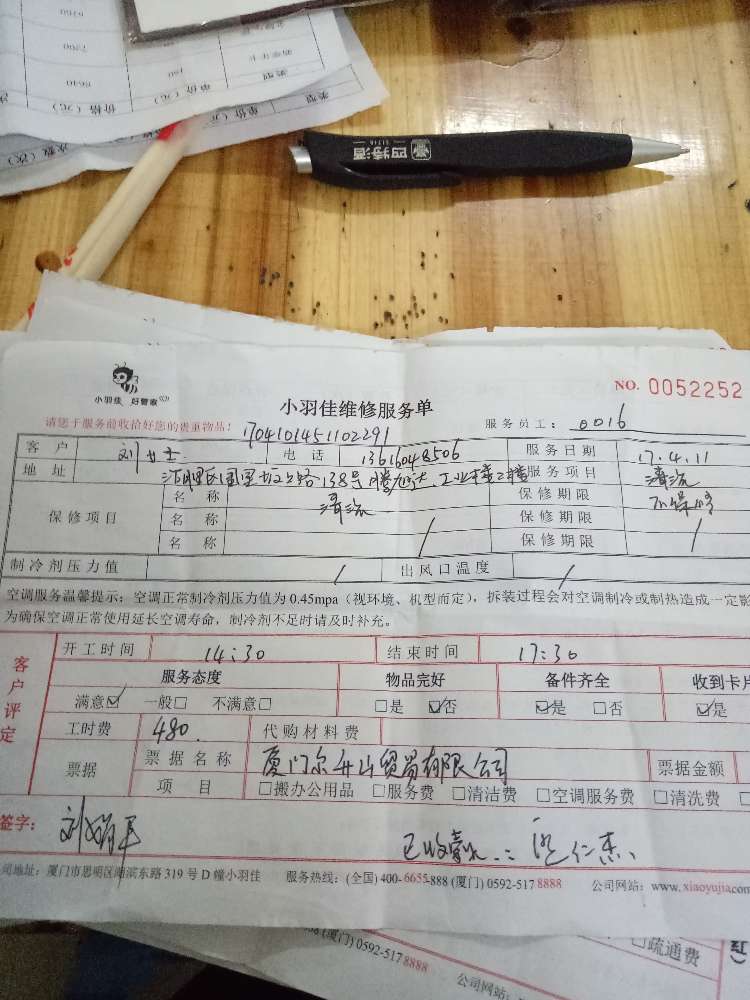 类型 单价（元） 价格（元） 次数（次）
四特酒
小羽佳 好管家
NO. 0052252
小羽佳维修服务单
请您于服务前收拾好您的贵重物品！
服务员工： 0016
1704101451102291
客户 刘女士 电话 13616048506 服务日期 17.4.11
地址 服务项目 清洗
保修项目 名称 清洗 保修期限 不保修
名称 保修期限
名称 / 保修期限 /
制冷剂压力值 / 出风口温度 /
空调服务温馨提示：空调正常制冷剂压力值为0.45mpa（视环境、机型而定），拆装过程会对空调制冷或制热造成一定影
为确保空调正常使用延长空调寿命，制冷剂不足时请及时补充。
客户评定
开工时间 14:30 结束时间 17:30
服务态度 物品完好 备件齐全 收到卡片
满意☑ 一般□ 不满意□ □是 ☑否 ☑是 □否 ☑是
工时费 480. 代购材料费
票据 票据名称 票据金额
项目 □搬办公用品 □服务费 □清洁费 □空调服务费 □清洗费
签字：
司地址：厦门市思明区湖滨东路319号D幢小羽佳 服务热线：(全国) 400-6655-888 (厦门) 0592-517 8888 公司网站：www.xiaoyujia.com
(厦门) 0592-517 8888 公司网站：
□疏通费